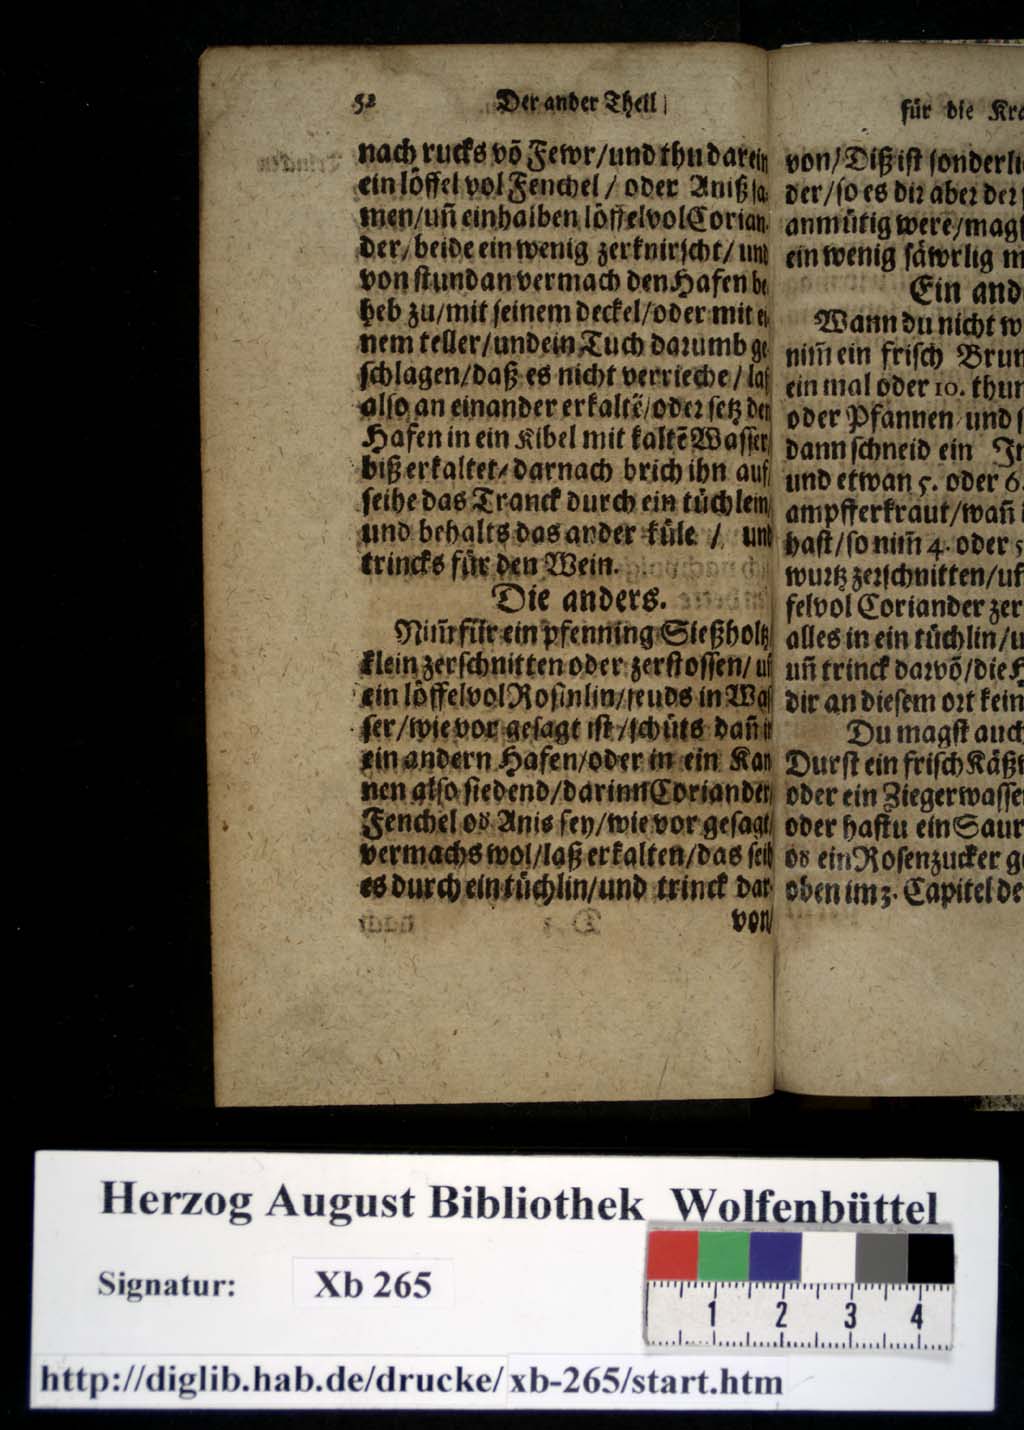 52 Der ander Theil
nach rucks võ Fewr/und thu darein
ein löffel vol Fenchel / oder Aniß sa
men/uñ ein halben löffel vol Corian
der/ beide ein wenig zerknirscht/ und
von stundan vermach den Hafen be
heb zu/mit seinem deckel/oder mit ei
nem teller/und ein Tuch darumb ge
schlagen/daß es nicht verrieche/ laß
also an einander erkaltẽ/oder setz den
Hafen in ein Kibel mit kaltẽ Wasser/
biß erkaltet/ darnach brich ihn auf/
seihe das Tranck durch ein tüchlein/
und behalts das ander küle / und
trincks für den Wein.
Die anders.
Nim̃ für ein pfenning Sießholtz
klein zerschnitten oder zerstossen/ uñ
ein löffel vol Rosinlin/seuds in Was
ser/wie vor gesagt ist/schüts dañ in
ein andern Hafen/oder in ein Kan
nen also siedend/darinn Coriander/
Fenchel od Anis sey/wie vor gesagt/
vermachs wol/laß erkalten/das seih
es durch ein tüchlin/und trinck dar
von/
für die
von/ Diß ist
der/so es dir aber der
anmütig were/
ein wenig säwrlig
Ein
Wann du nicht
nim̃ ein frisch
ein mal oder 10.
oder Pfannen und
dann schneid ein
und etwan 5. oder 6.
ampfferkraut/wañ
hast/so nim̃ 4. oder 5
wurtz zerschnitten/
Coriander
alles in ein tüchlin/
uñ trinck darvõ/die
dir an diesem ort
Du magst auch
Durst ein frisch
oder ein
oder hastu ein
od ein Rosenzucker
oben im 3. Capitel
Herzog August Bibliothek Wolfenbüttel
Signatur: Xb 265
1 2 3 4
http://diglib.hab.de/drucke/xb-265/start.htm